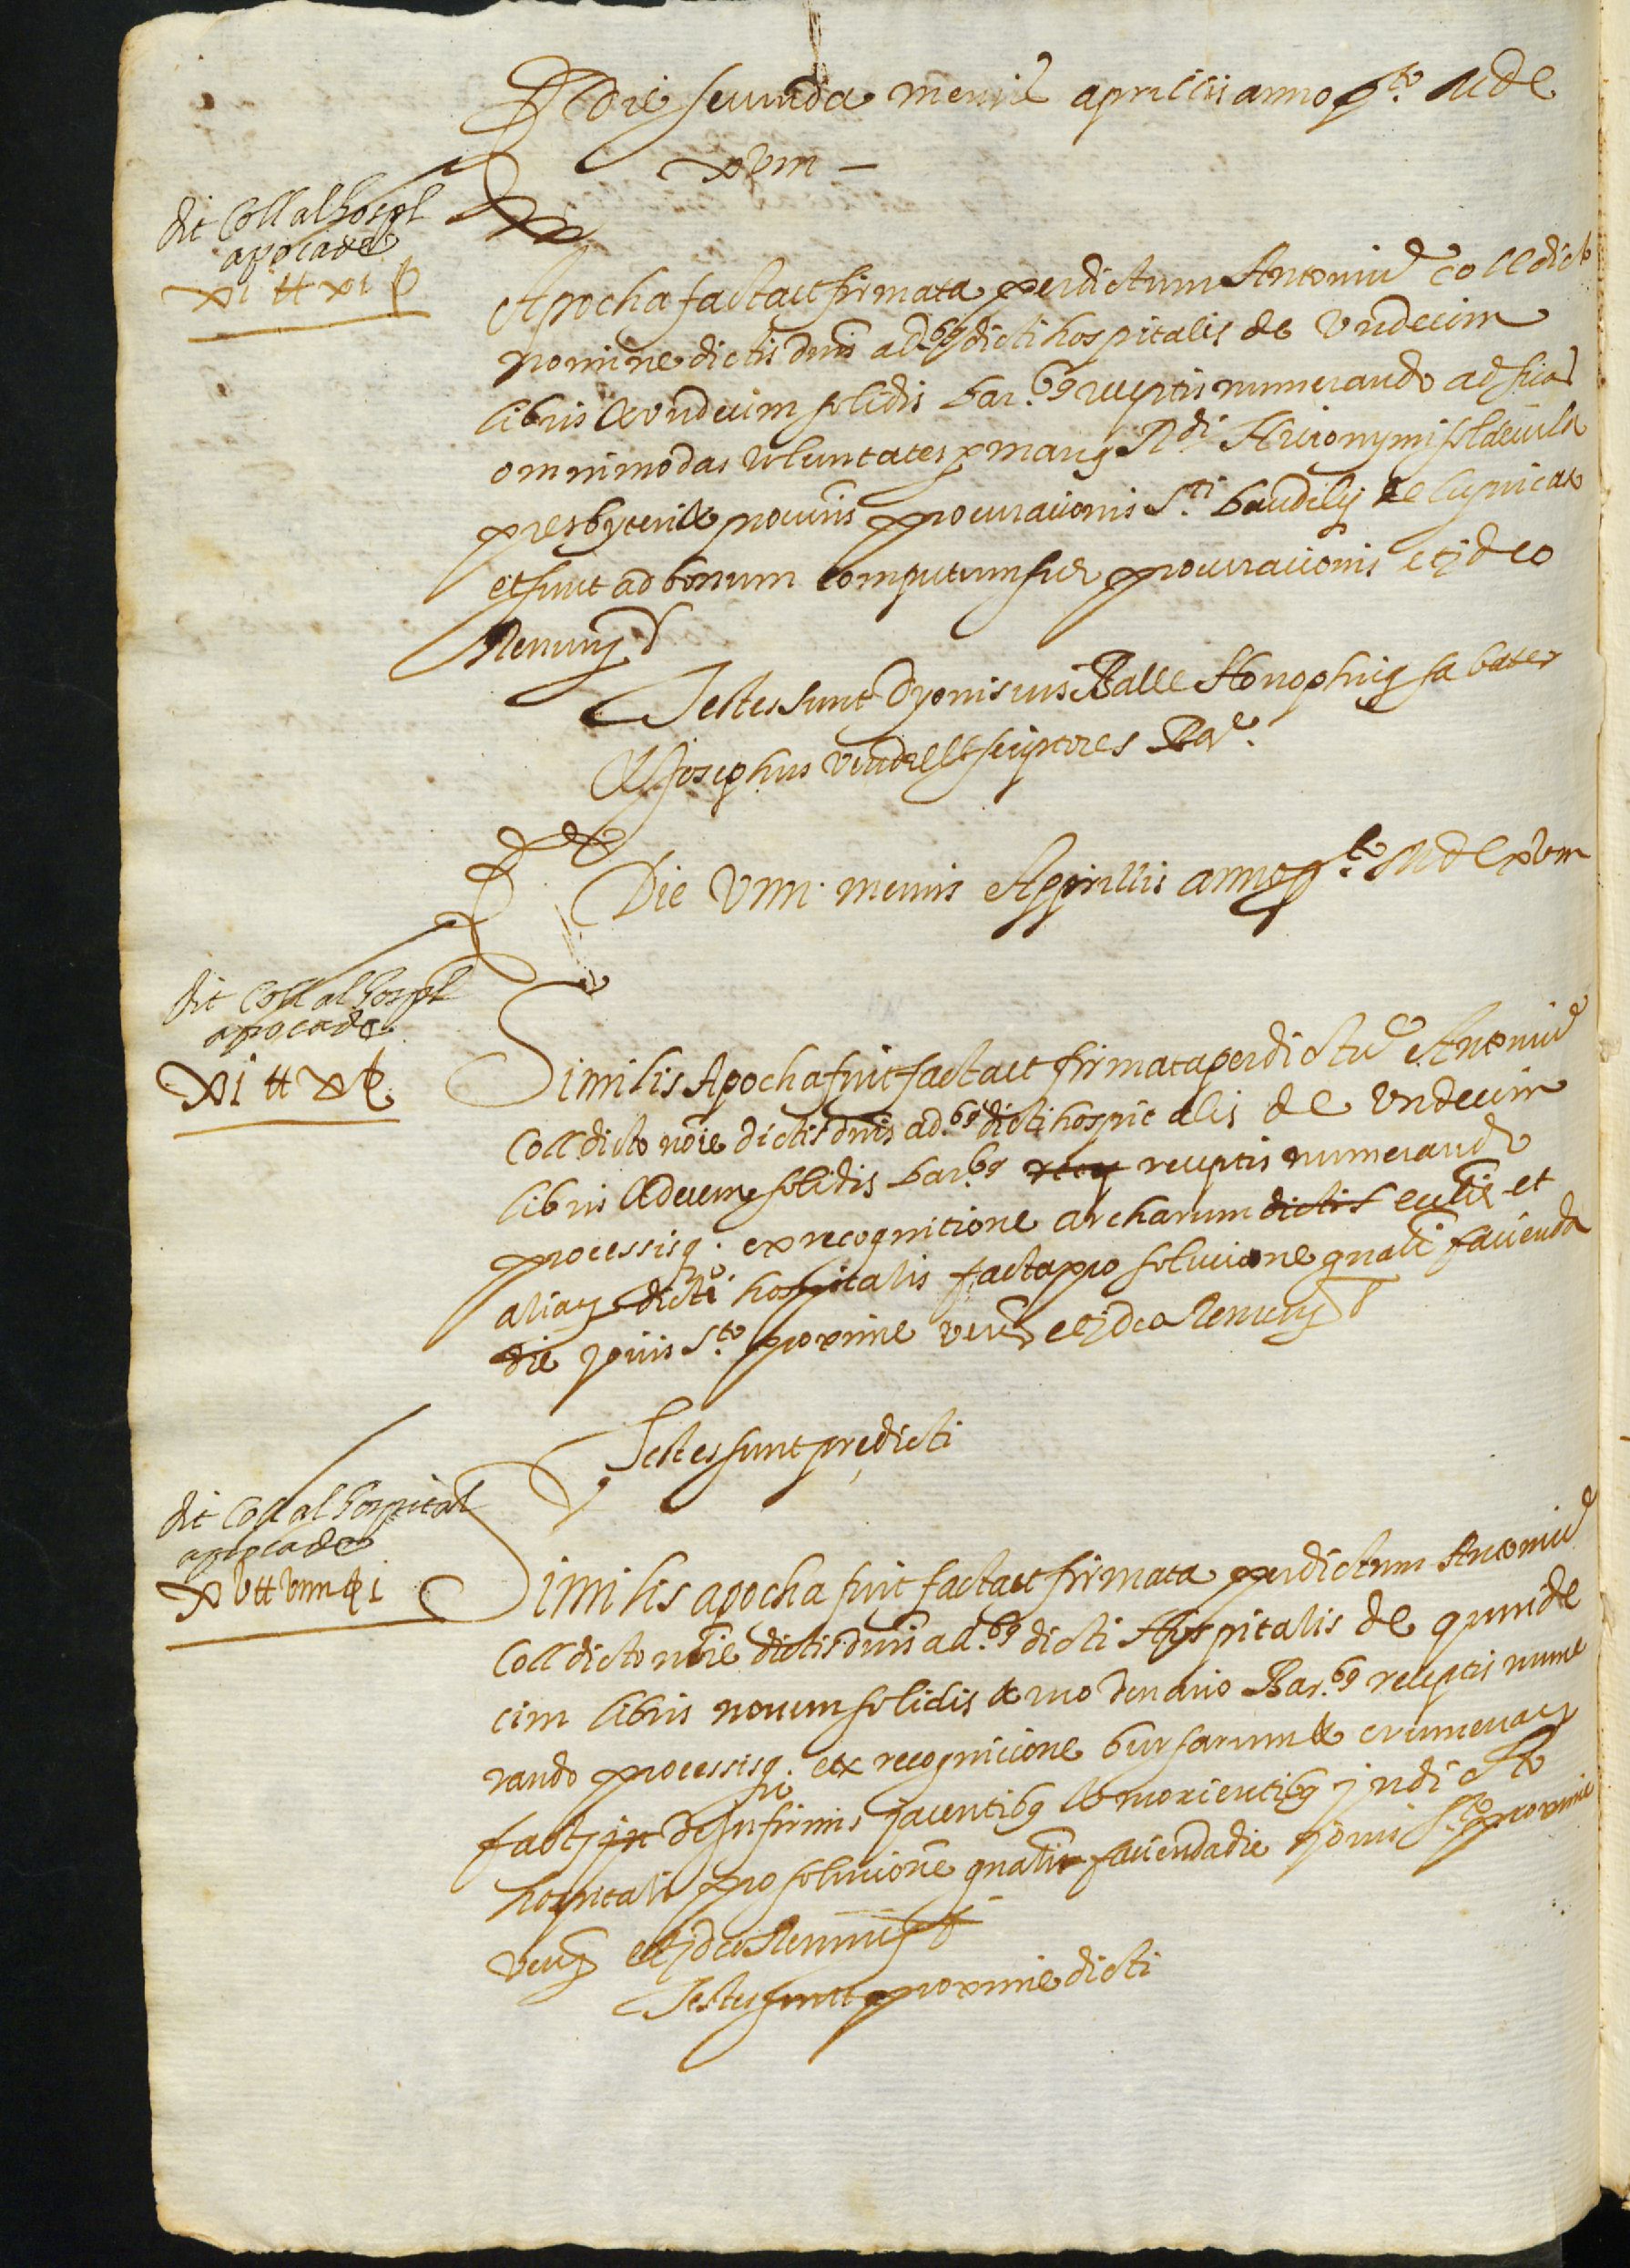 Die secunda mensis aprillis anno pto. MDC
xviii —
dit Coll al hospl
apoca de
xi ₶ xi ß
Apocha facta et firmata per dictum Antoniū Coll dicto
nomine dictis dnis adbꝯ dicti hospitalis de undecim
libris & undecim solidis bar.bꝯ receptis numerando ad suas
omnimodas voluntates p manꝯ Rdi Hieronymi soldeuila
presbyteri & procuris procurationis Sti. baudilij de lupricato
et sunt ad bonum computum sue procurationis et ideo
Renunꝯ
Testes sunt Dyonisius Ralle Honophriꝯ sabater
& Josephus vendrell scriptores Bar.
Die viiii. mensis Aprillis anno pto. MDCxviii
dit Coll al hospl
apoca de
xi ₶ x ß
Similis Apocha fuit facta et firmata per dictū Antoniū
Coll dicto noīe dictis dnis ad.bꝯ dicti hospitalis de undecim
libris & decem solidis bar.bꝯ recep receptis numerando
processisq. ex recognitione archarum dictis ecclie et
aliaꝝ dicti hospitalis facta pro solucione gnali facienda
die Jovis Sto proxime ventꝯ et ideo Renunꝯ
Testes sunt predicti
dit Coll al hospital
apoca de
xv ₶ viiii ß i
Similis apocha fuit facta et firmata per dictum Antoniū
Coll dicto noīe dictis dnis ad.bꝯ dicti Hospitalis de quinde
cim libris novem solidis & uno denario Bar.bꝯ receptis nume
rando processisq. ex recognicione bursarum & crumenaꝝ
fact in de infirmis jacentibꝯ & morientibꝯ in dicto
hospitali pro solucione gnali facienda die Jovis Sto proxime
ventꝯ et ideo Renunꝯ
Testes sunt proxime dicti